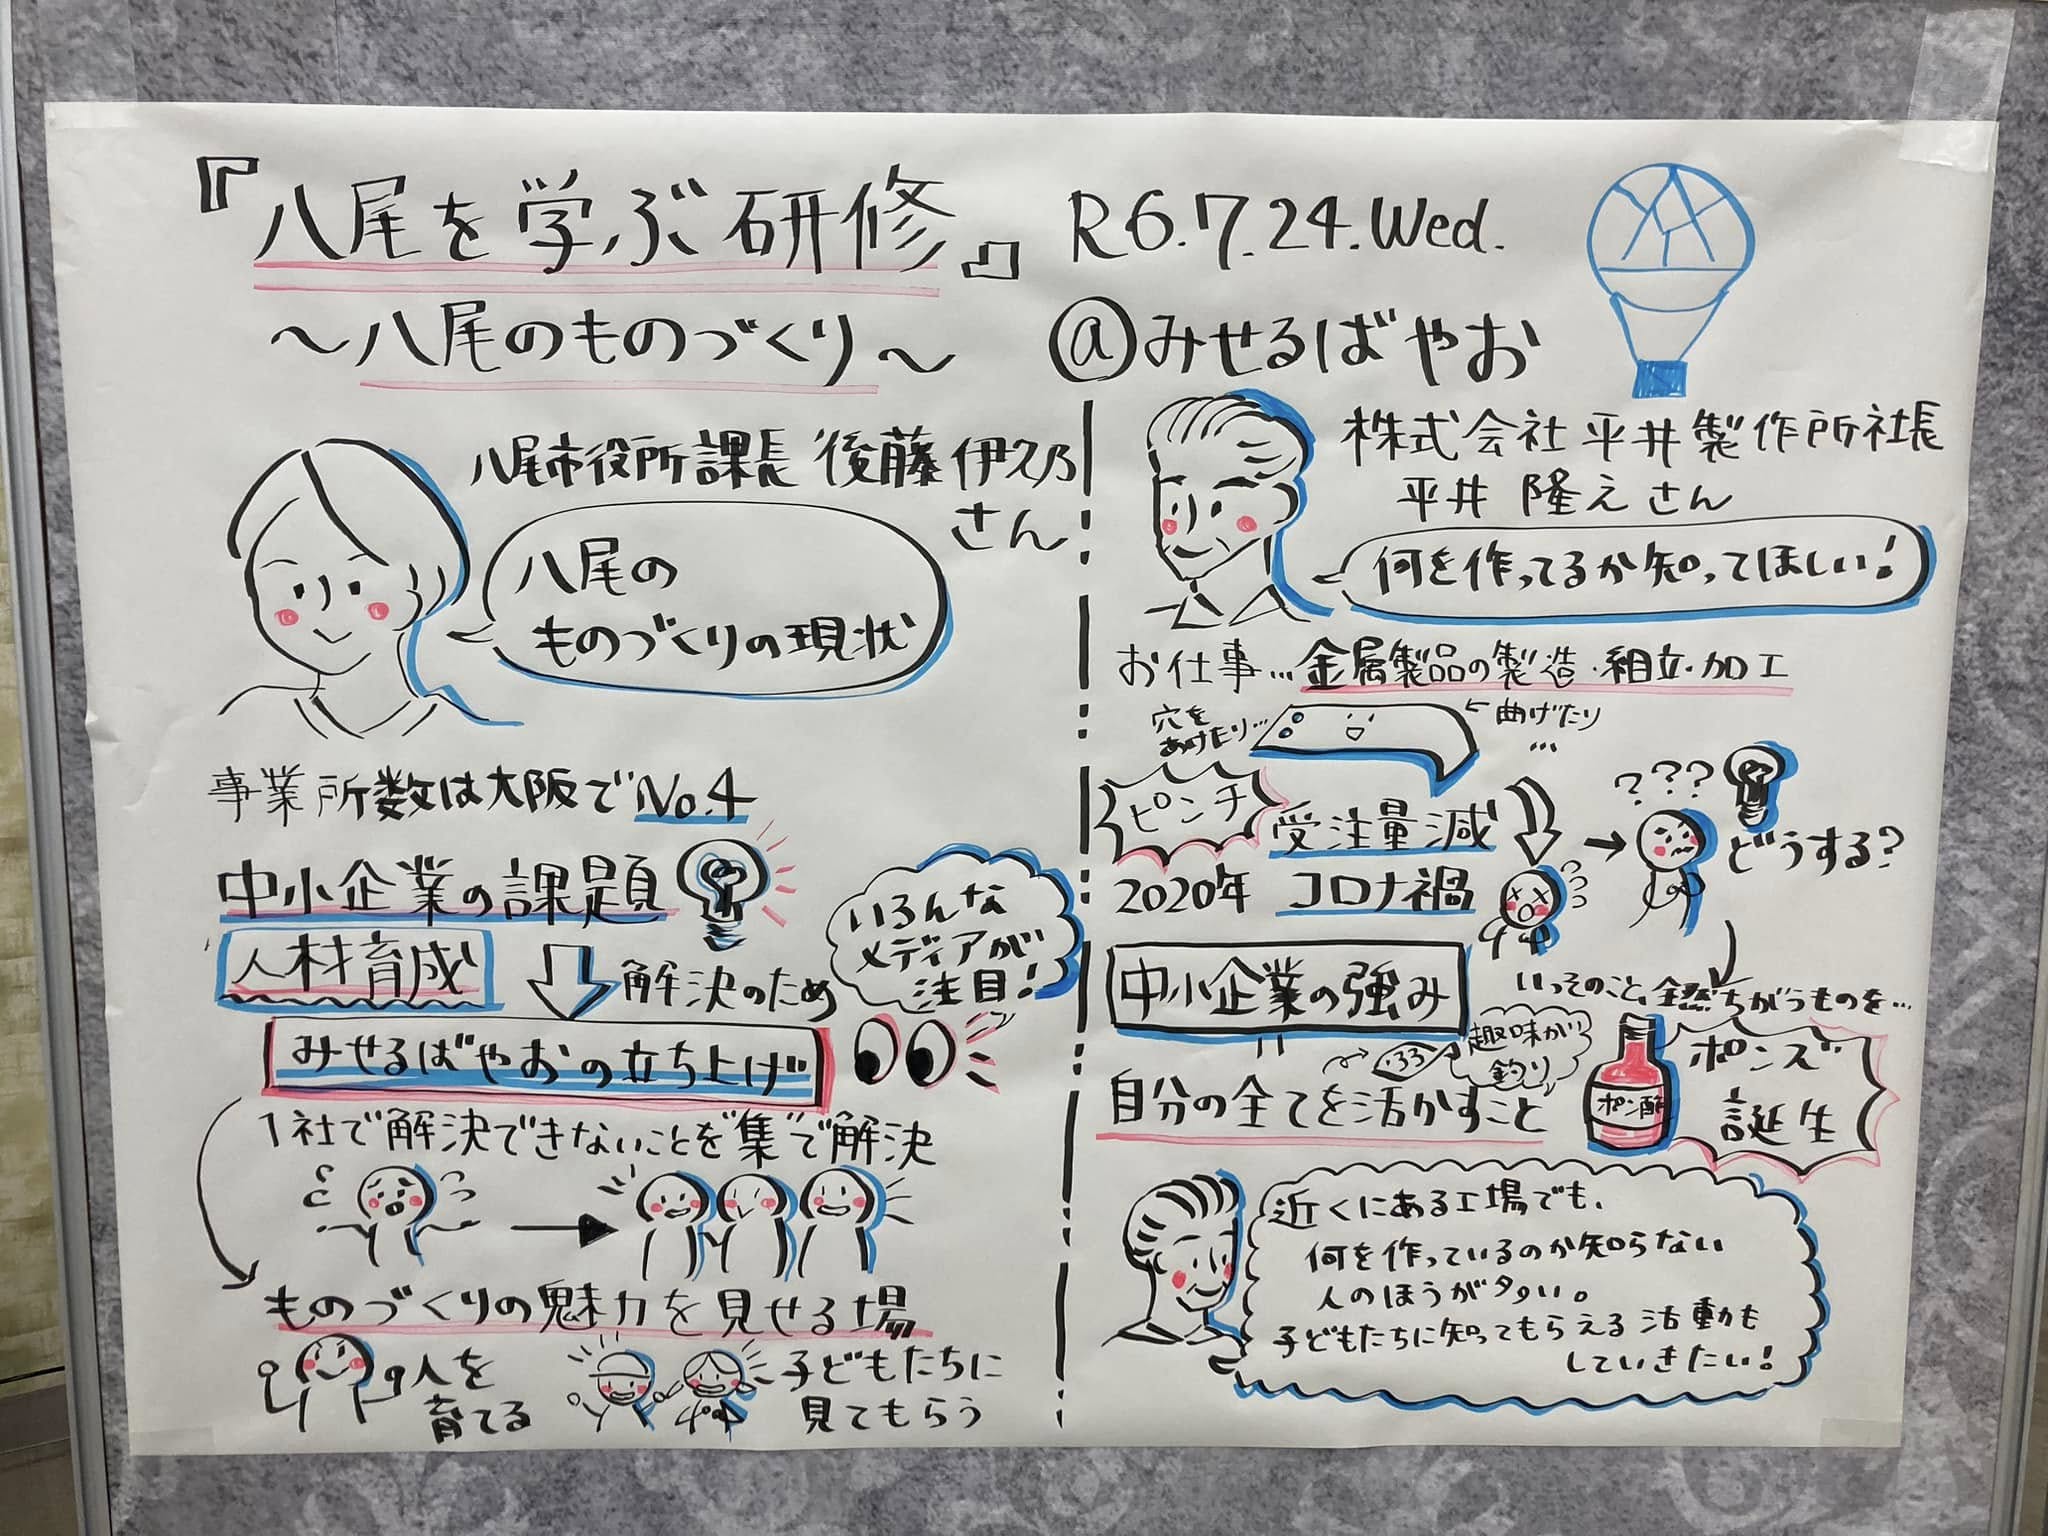 『八尾を学ぶ研修』
～八尾のものづくり～
R6.7.24.Wed.
@みせるばやお
八尾市役所課長 後藤 伊久乃
さん
八尾の
ものづくりの現状
事業所数は大阪でNo.4
中小企業の課題
人材育成
解決のため
いろんな
メディアが
注目!
みせるばやおの立ち上げ
1社で解決できないことを"集"で解決
ものづくりの魅力を見せる場
人を
育てる
子どもたちに
見てもらう
株式会社 平井製作所社長
平井 隆之さん
何を作ってるか知ってほしい!
お仕事…金属製品の製造・組立・加工
穴を
あけたり…
曲げたり
…
ピンチ
受注量減
2020年 コロナ禍
???
どうする?
いっそのこと、全然ちがうものを…
中小企業の強み
=
趣味が
釣り
自分の全てを活かすこと
ポン酢
ポンズ
誕生
近くにある工場でも、
何を作っているのか知らない
人のほうが多い。
子どもたちに知ってもらえる活動も
していきたい!